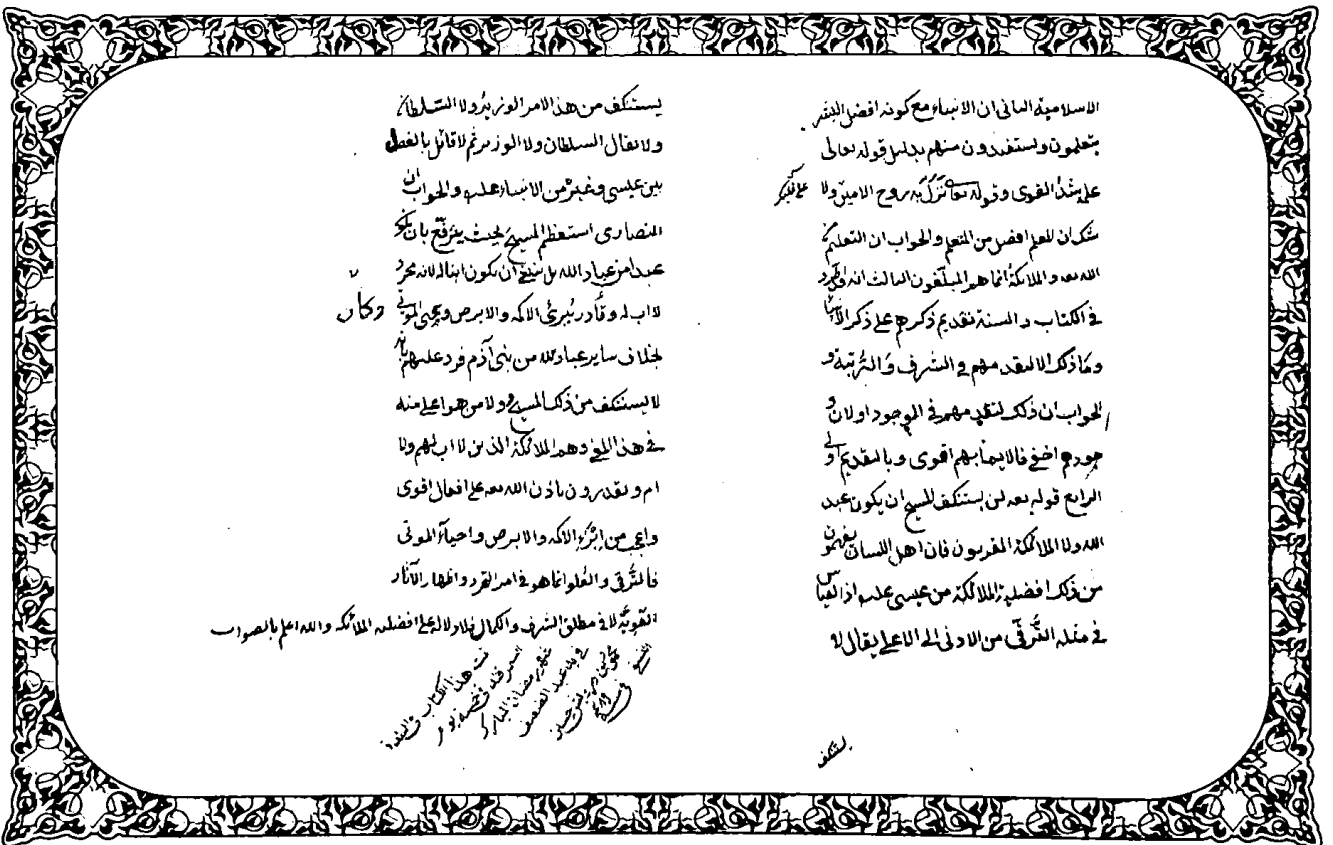 الاسلامية الثانى ان الانبياء مع كونه افضل البشر
يتعلمون ويستفيدون منهم بدليل قوله تعالى
علمه شديد القوى وقوله تعا نزل به روح الامين ولا
شك ان المعلم افضل من المتعلم والجواب ان التعليم من
الله تعه والملائكة انما هم المبلغون الثالث انه قد اطرد
فى الكتاب والسنة تقديم ذكرهم على ذكر الانبيا
وما ذلك الا لتقدمهم فى الشرف والرتبة و
الجواب ان ذلك لتقدمهم فى الوجود اولان و
جودهم اخفى فالايمان بهم اقوى وبالتقديم اولى
الرابع قوله تعه لن يستنكف المسيح ان يكون عبد
الله ولا الملائكة المقربون فان اهل اللسان يفهمون
من ذلك افضلية الملائكة من عيسى عليه اذ القياس
فى مثله الترقى من الادنى الى الاعلى يقال لا
يستنكف
يستنكف من هذا الامر الوزير ولا السلطان
ولا يقال السلطان ولا الوزير ثم لا قائل بالفصل
بين عيسى وغيره من الانبياء عليه والجواب ان
النصارى استعظم المسيح بحيث يترفع بان يكون
عبدا من عباد الله بل ينبغى ان يكون ابنا له لانه مجرد
لا اب له وقادر يبرئ الاكمه والابرص ويحيى الموتى وكان
بخلاف ساير عباد الله من بنى آدم فرد عليهم بانه
لا يستنكف من ذلك المسيح ولا من هو اعلى منه
فى هذا المعنى وهم الملائكة الذين لا اب لهم ولا
ام ويقدرون باذن الله تعه على افعال اقوى
واعجب من ابراء الاكمه والابرص واحياء الموتى
فالترقى والعلو انما هو فى امر التجرد واظهار الآثار
القوية لا فى مطلق الشرف والكمال فلا دلالة على افضلية الملائكه والله اعلم بالصواب
تمت هذا الكتاب فى البلدة
شهر رمضان المبارك
فى يد عبد الضعيف